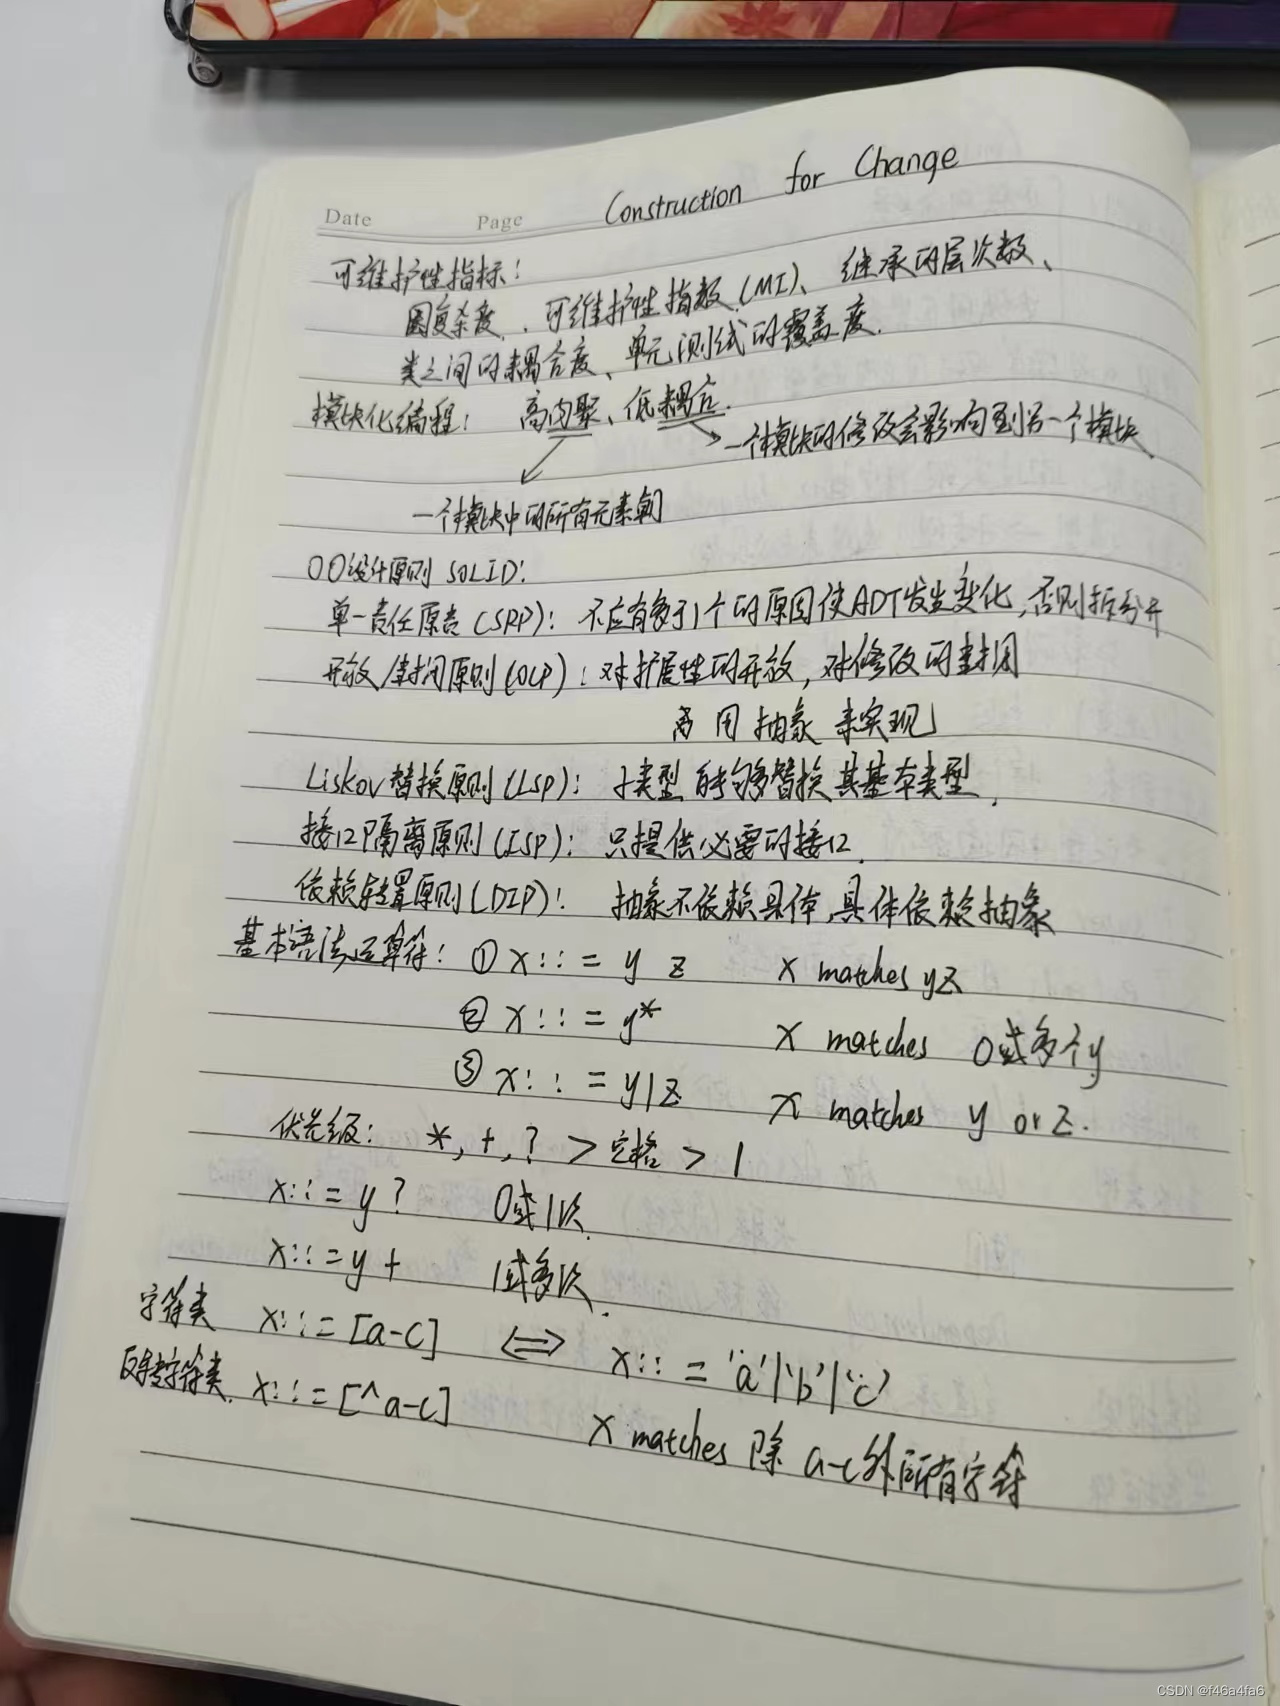 Construction for Change
Date Page
可维护性指标：
圈复杂度、可维护性指数(MI)、继承的层次数、
类之间的耦合度、单元测试的覆盖度.
模块化编程： 高内聚、低耦合.
一个模块的修改会影响到另一个模块
一个模块中的所有元素
OO设计原则 SOLID:
单一责任原责(SRP)：不应有多于1个的原因使ADT发生变化，否则拆分开
开放/封闭原则(OCP)：对扩展性的开放，对修改的封闭
用 抽象 来实现
Liskov替换原则(LSP)： 子类型 能够替换其基本类型.
接口隔离原则(ISP)： 只提供必要的接口.
依赖转置原则(DIP)： 抽象不依赖具体，具体依赖抽象
基本语法运算符： ① x::= y z x matches yz
② x::= y* x matches 0或多个y
③ x::= y|z x matches y or z.
优先级： *, +, ? > 空格 > |
x::= y? 0或1次.
x::= y+ 1或多次.
字符类 x::= [a-c] ⟺ x::= 'a'|'b'|'c'
字符类. x::= [^a-c]
x matches 除 a-c外所有字符
CSDN @f46a4fa6